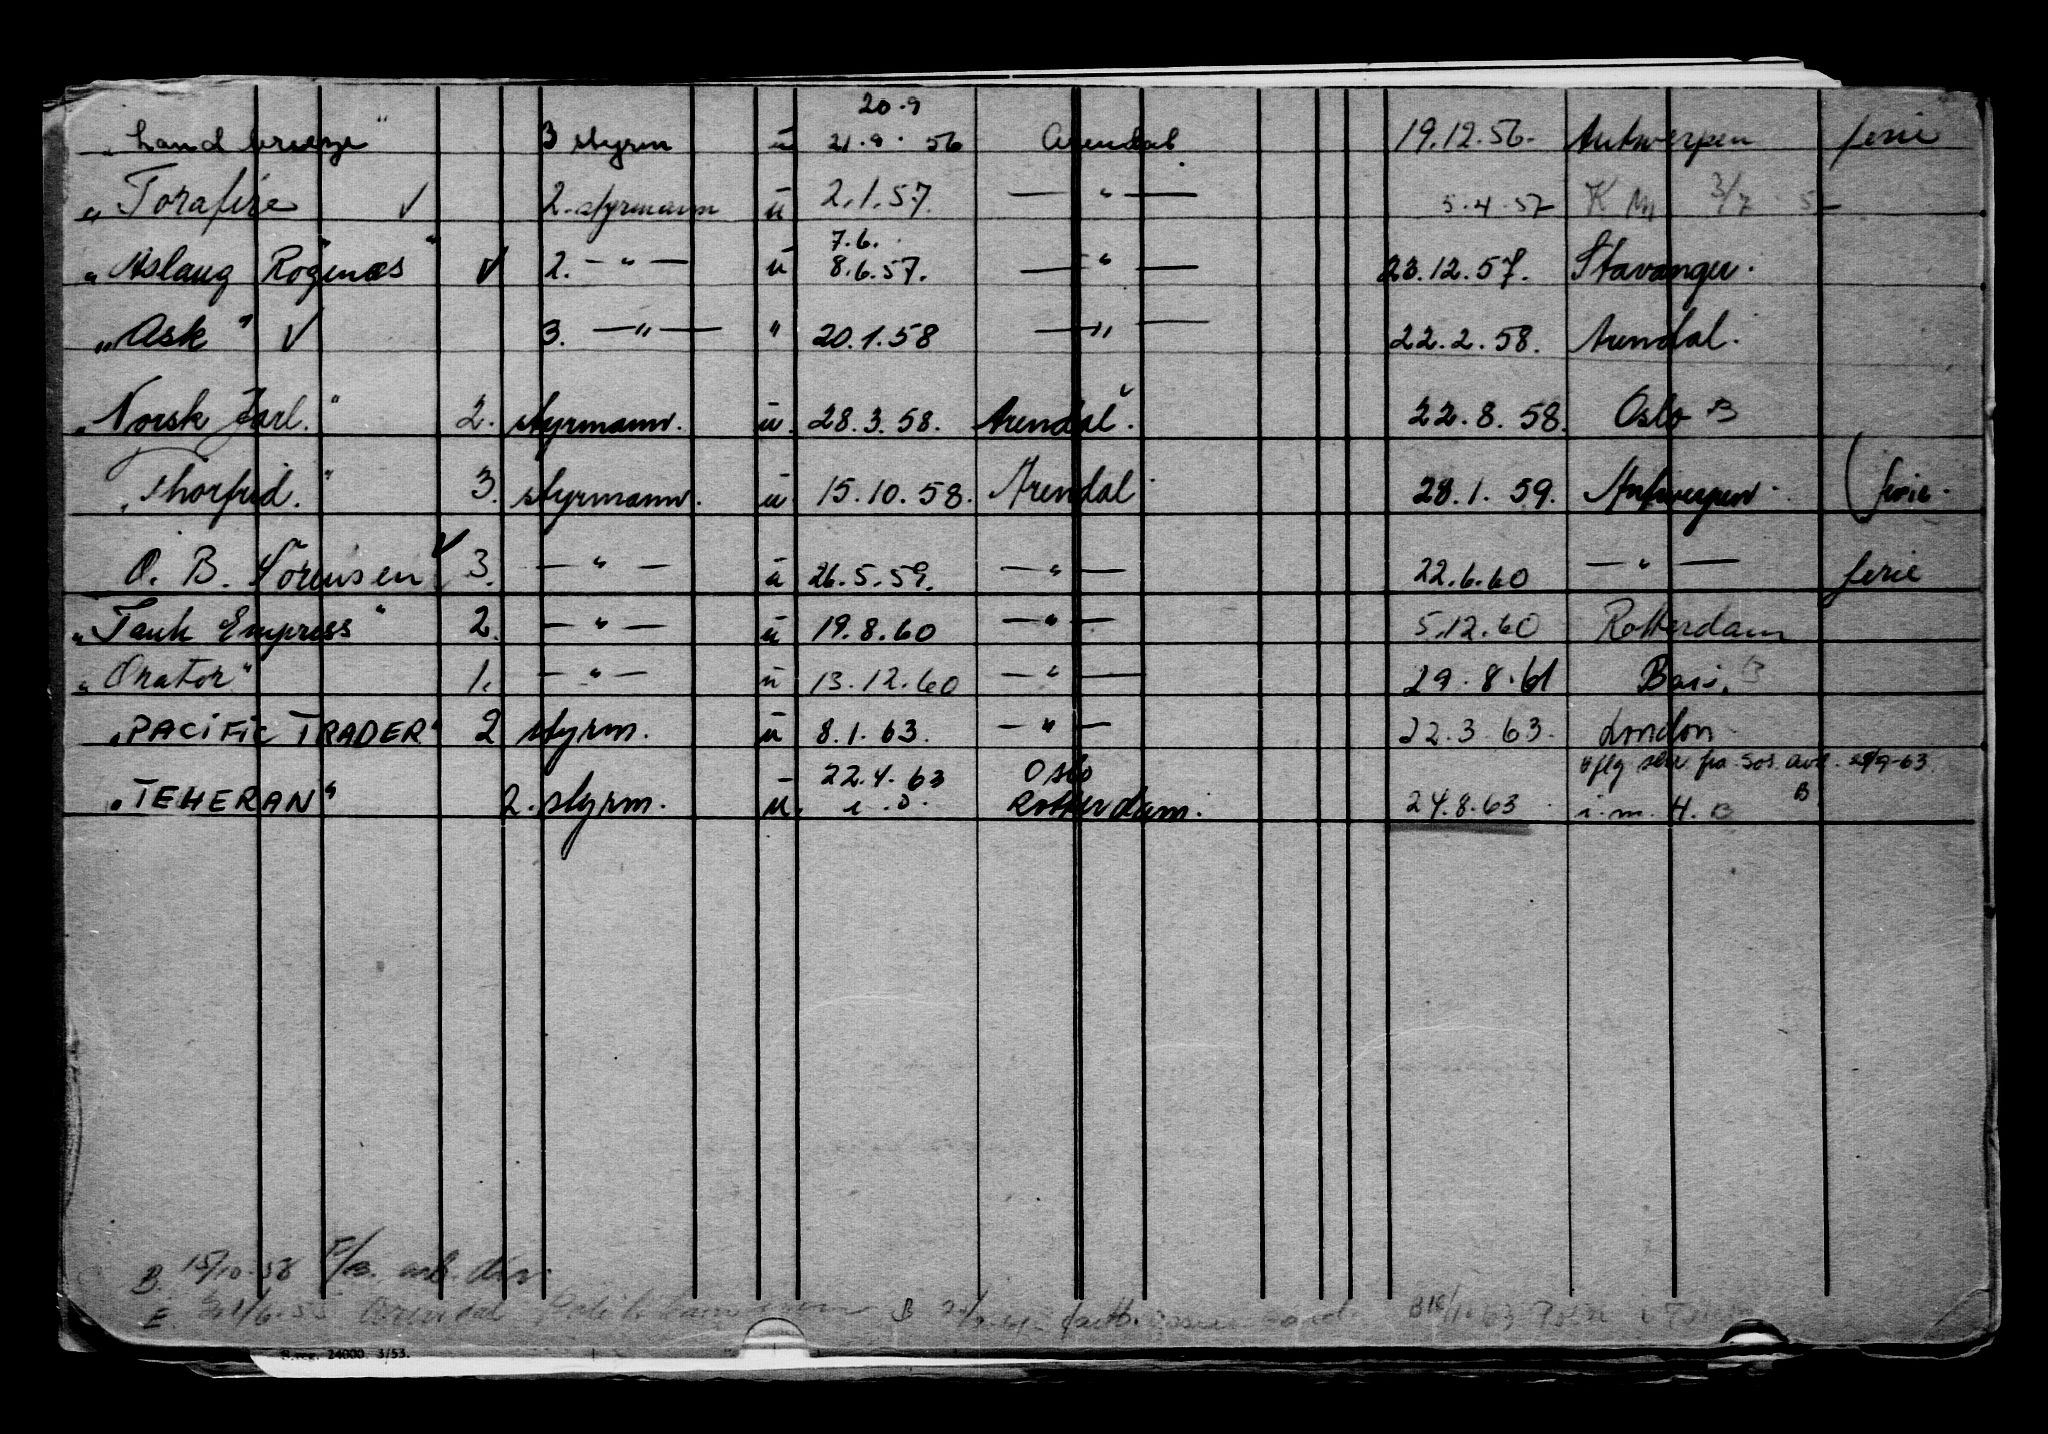 20.9
"Landbreeze" 3 styrm u 21.9.56 Arendal 19.12.56. Antwerpen ferie
"Torafire ✓ 2. styrmann u 2.1.57. — " — 5.4.57
7.6.
"Aslaug Rögenæs" ✓ 2. — " — u 8.6.57. — " — 23.12.57. Stavanger.
"Ask" ✓ 3. — " — " 20.1.58 — " — 22.2.58. Arendal.
"Norsk Jarl." 2. styrmann. u. 28.3.58. Arendal. 22.8.58. Oslo B
"Thorfrid." 3. styrmann. u. 15.10.58. Arendal 28.1.59. Antwerpen. (ferie.
O. B. Sörensen ✓ 3. — " — u 26.5.59. — " — 22.6.60 — " — ferie
"Tank Empress" 2. — " — u 19.8.60 — " — 5.12.60 Rotterdam
"Orator" 1. — " — u 13.12.60 — " — 29.8.61 Bari. B
"PACIFIC TRADER" 2 styrm. u 8.1.63. — " — 22.3.63. London
22.4.63 Oslo fra Sos. avd.
"TEHERAN" 2. styrm. u. Rotterdam. 24.8.63 i.m. H. B B
B. 15/10.58 F/3. arb. div.
E. Arendal
S.reg. 24000. 3/53.